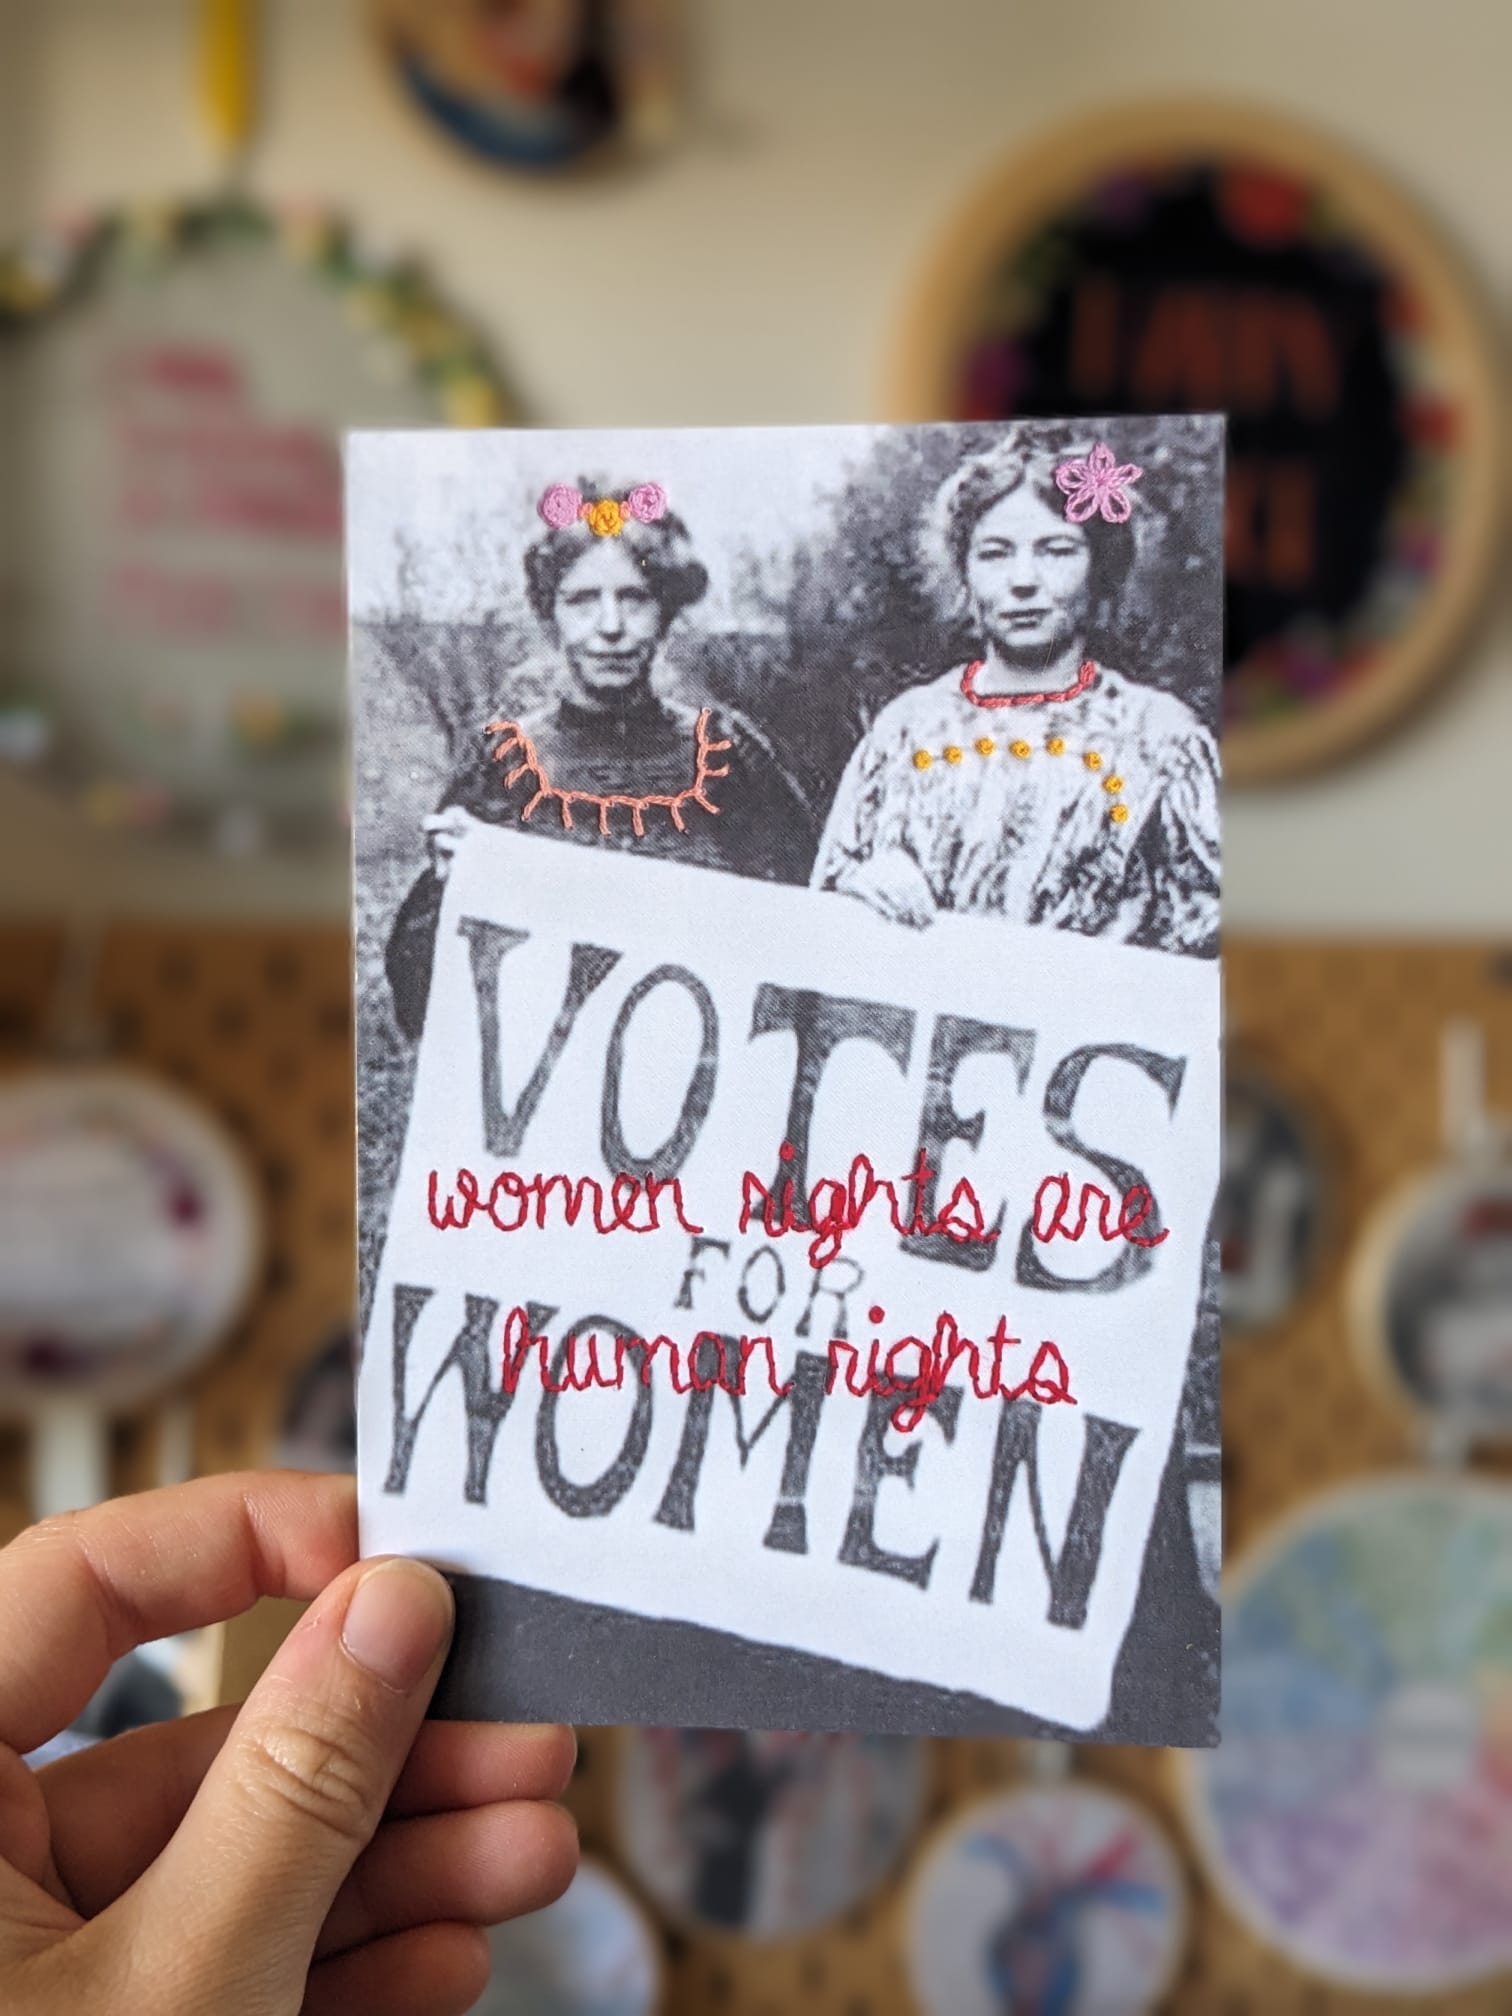 VOTES
women rights are
FOR
human rights
WOMEN
I AM